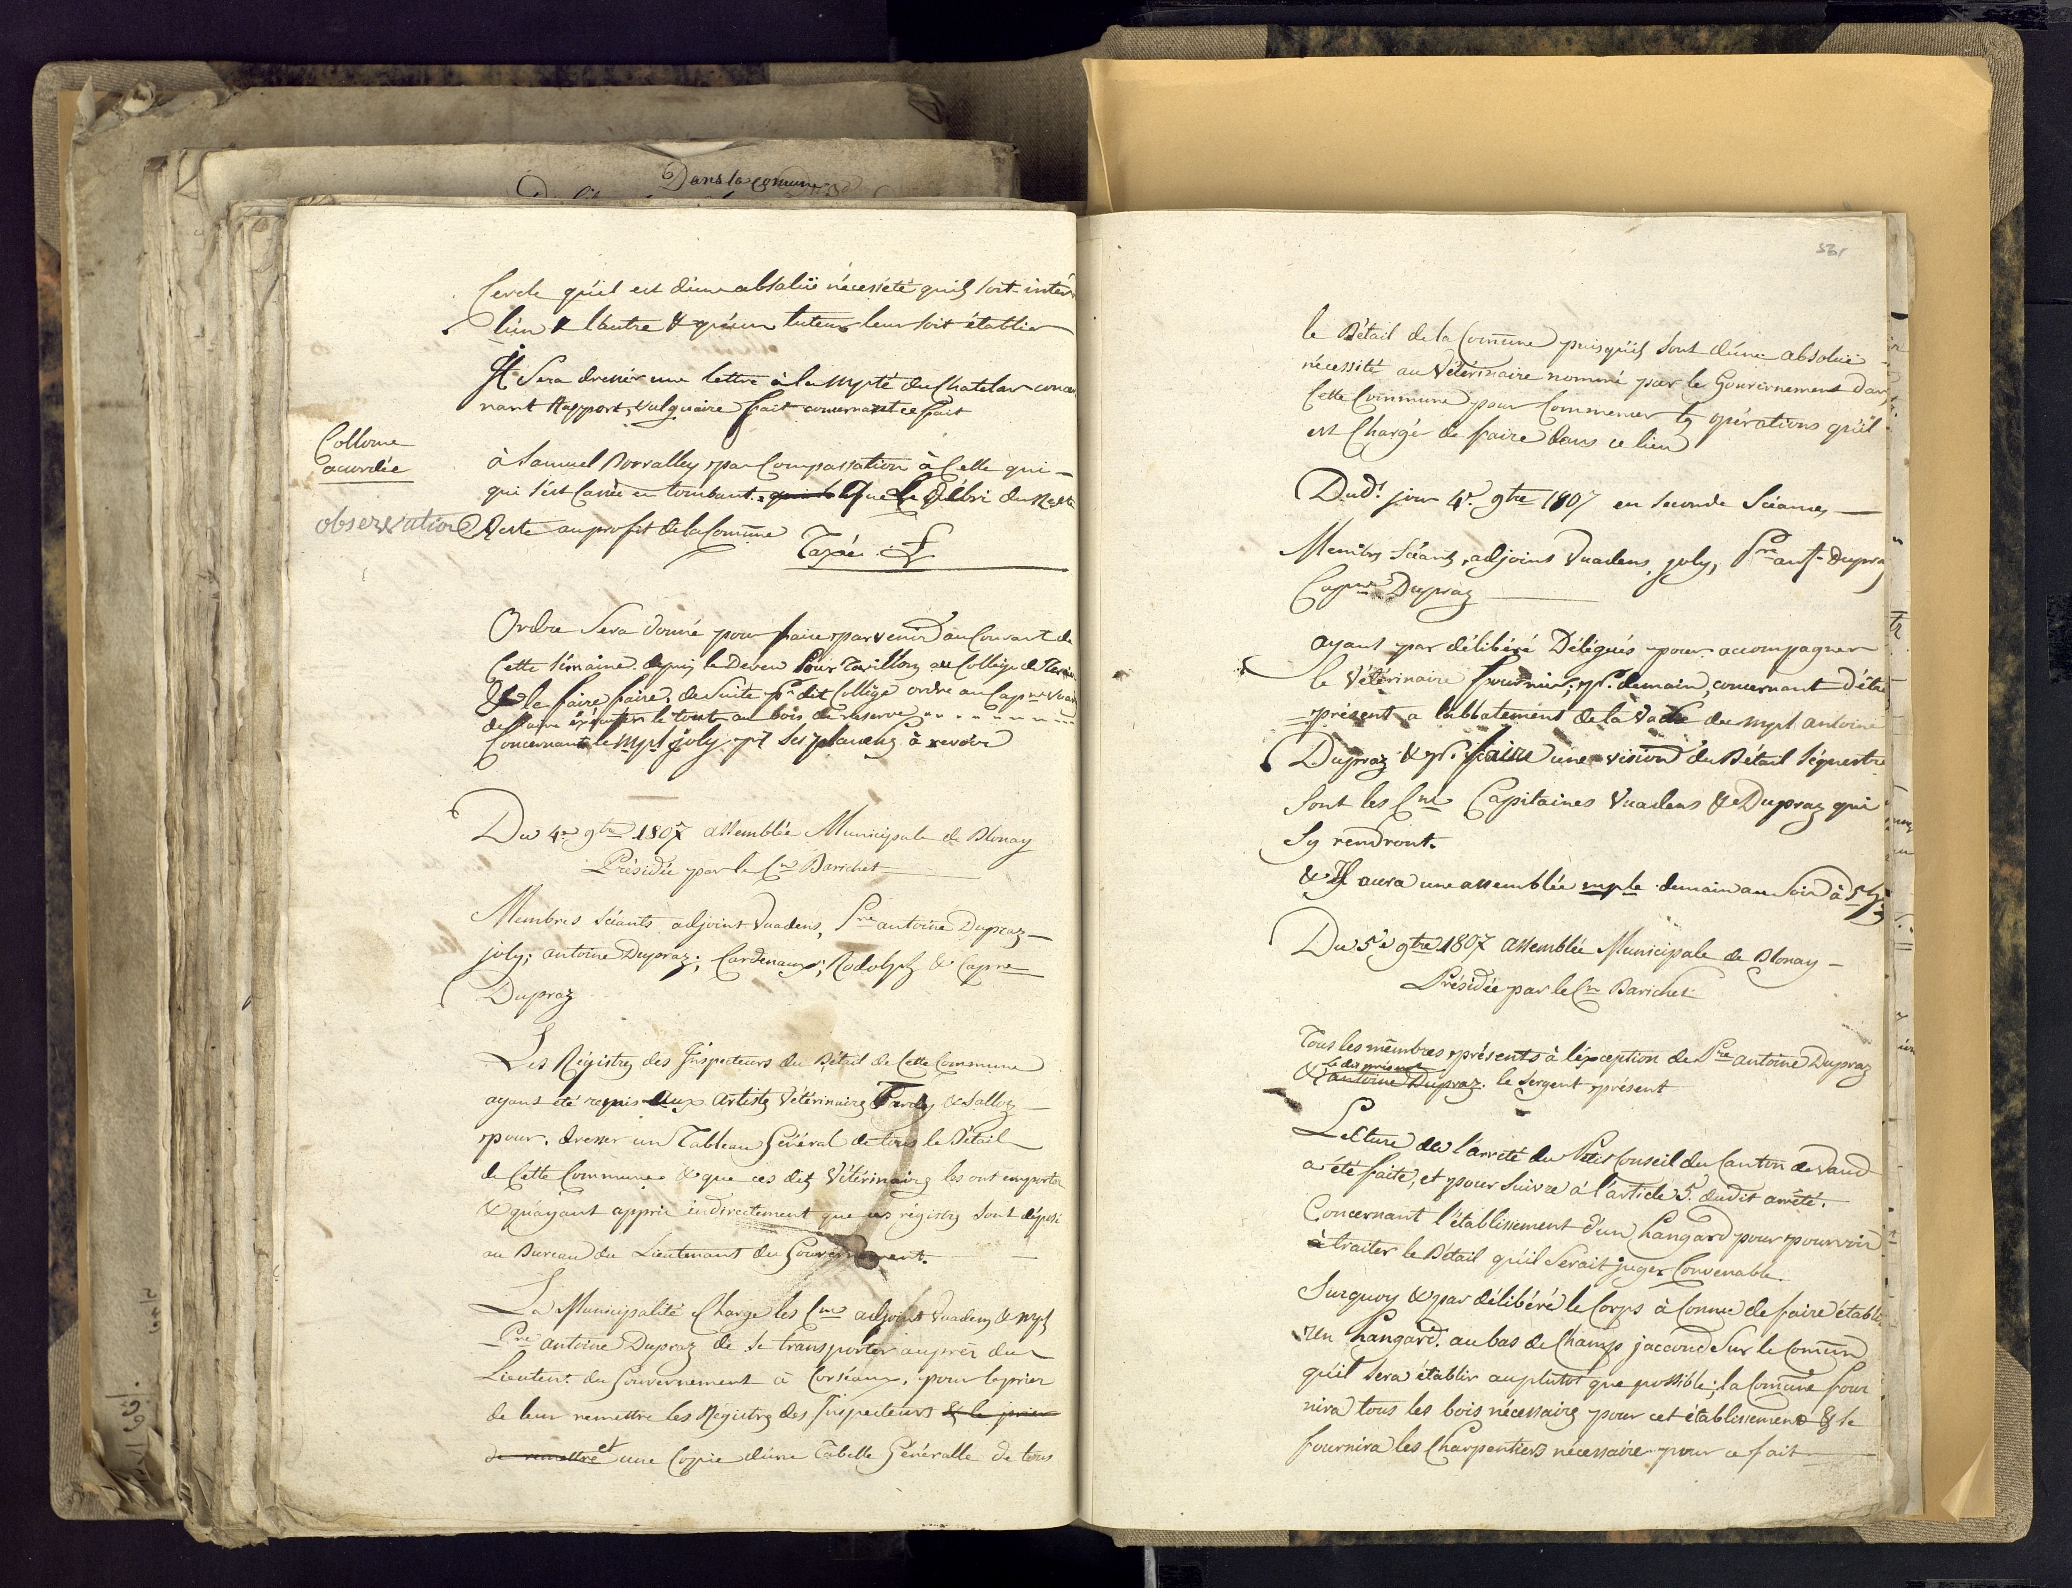 Dans la comune
Cercle qu'il est d'une absolüe nécessité quils soit inter
l'un & l'autre & qu'un tuteur leur soit établir
Il Sera dressér une lettre à la mpté du Chatelar conce
nant Rapport, vulguaire fait concernant ce fait
Collonne
acordée
à Samuel Borralley par Compassation à Celle qui -
qui s'est Cassée en tombant. Que le Débri du Reste
observation Reste au profit de la Comune
Taxée
Ordre Sera donné pour faire parvenir au Courant de
Cette Semaine. depuis le Deven Pour Tavillon au Collège de
& le faire faire de Suite pr dit Collège ordre au Capne
de faire éxécuter le tout au bois de reserve
Concernant le mpl joly pr ses planches à revoir
Du 4e 9bre 1807 assemblée Municipale de Blonay
Présidée par le Cn Barichet
Membres Séants adjoint Vuadens, Pre antoine Dupraz -
joly; antoine Dupraz; Cardenaux; Rodolph & Capne
Dupraz
Les Régistres des Inspecteurs du Bétail de Cette Commune
ayant été requis aux Artistes Vétérinaires Tardy & Salloz
pour, dresser un Tableau Général de tous le Bétail
de Cette Commune & que ces dits Vétérinaires les ont emportée
& qu'ayant appris indirectement que ces régistres sont déposé
au Bureau du Lieutenant du Gouvernement.
La Municipalité Charge les Cns adjoint Vuadens & mpl
Pre antoine Dupraz de se transporter auprès du
Lieutent du Gouvernement à Corséaux, pour le prier
de leur remettre les Régistres des Inspecteurs & le prier
de remettre et une Copie d'une Tabelle Générale de tous
le Bétail de la Comune puisqu'ils sont d'une absolüe
nécessité au Vétérinaire nommé par le Gouvernement dans
Cette Commune pour Commencer les opérations qu'il
est Chargé de faire dans ce lieu
Dudt jour 4e 9bre 1807 en seconde Séances
Membres Séants, adjoint Vuadens, joly, Pre ant Dupraz
Capne Dupraz
ayant par délibéré Délégués pour accompagner
le Vétérinaire fournier; pr. demain, concernant d'être
présent à l'abbatement de la Vache du mpl antoine
Dupraz & pr. faire une vision du Bétail séquestre
sont les Cns Capitaines Vuadens & Dupraz qui
sy rendront.
& Il aura une assemblée mple demain au Soir à 5 h
Du 5e 9bre 1807 assemblée Municipale de Blonay -
Présidée par le Cn Barichet
Tous les membres présents à l'éxception de Pre antoine Dupraz
& antoine Dupraz. le Sergent présent
Lecture de l'arrêté du Petit Conseil du Canton de Vaud
a été faite, et pour suivre à l'article 5. dudit arrêté.
Concernant l'établissement d'un hangard pour pourvoir
à traiter le Bétail qu'il Serait juger Convenable.
Surquoy & par délibéré le Corps à Connu de faire établir
un hangard. au bas de Champs jaccoud sur le Comun
qu'il sera établir au plutot que possible; la Comune four
nira tous les bois nécessaires pour cet établissement & se
fournira les Charpentiers nécessaire pour ce fait